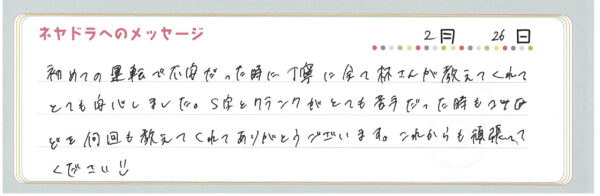 ネヤドラへのメッセージ
2月 26日
初めての運転で不安だった時に丁寧に全て林さんが教えてくれて
とても安心しました。S字とクランクがとても苦手だった時も
を何回も教えてくれてありがとうございます。これからも頑張って
ください